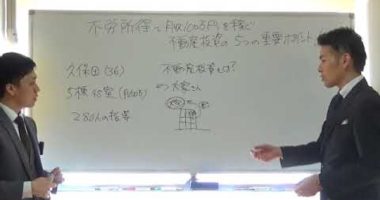 不労所得で月収100万円を稼ぐ
不動産投資の5つの重要ポイント
久保田(36)
不動産投資とは?
5棟 48室
→大家さん
280人の指導